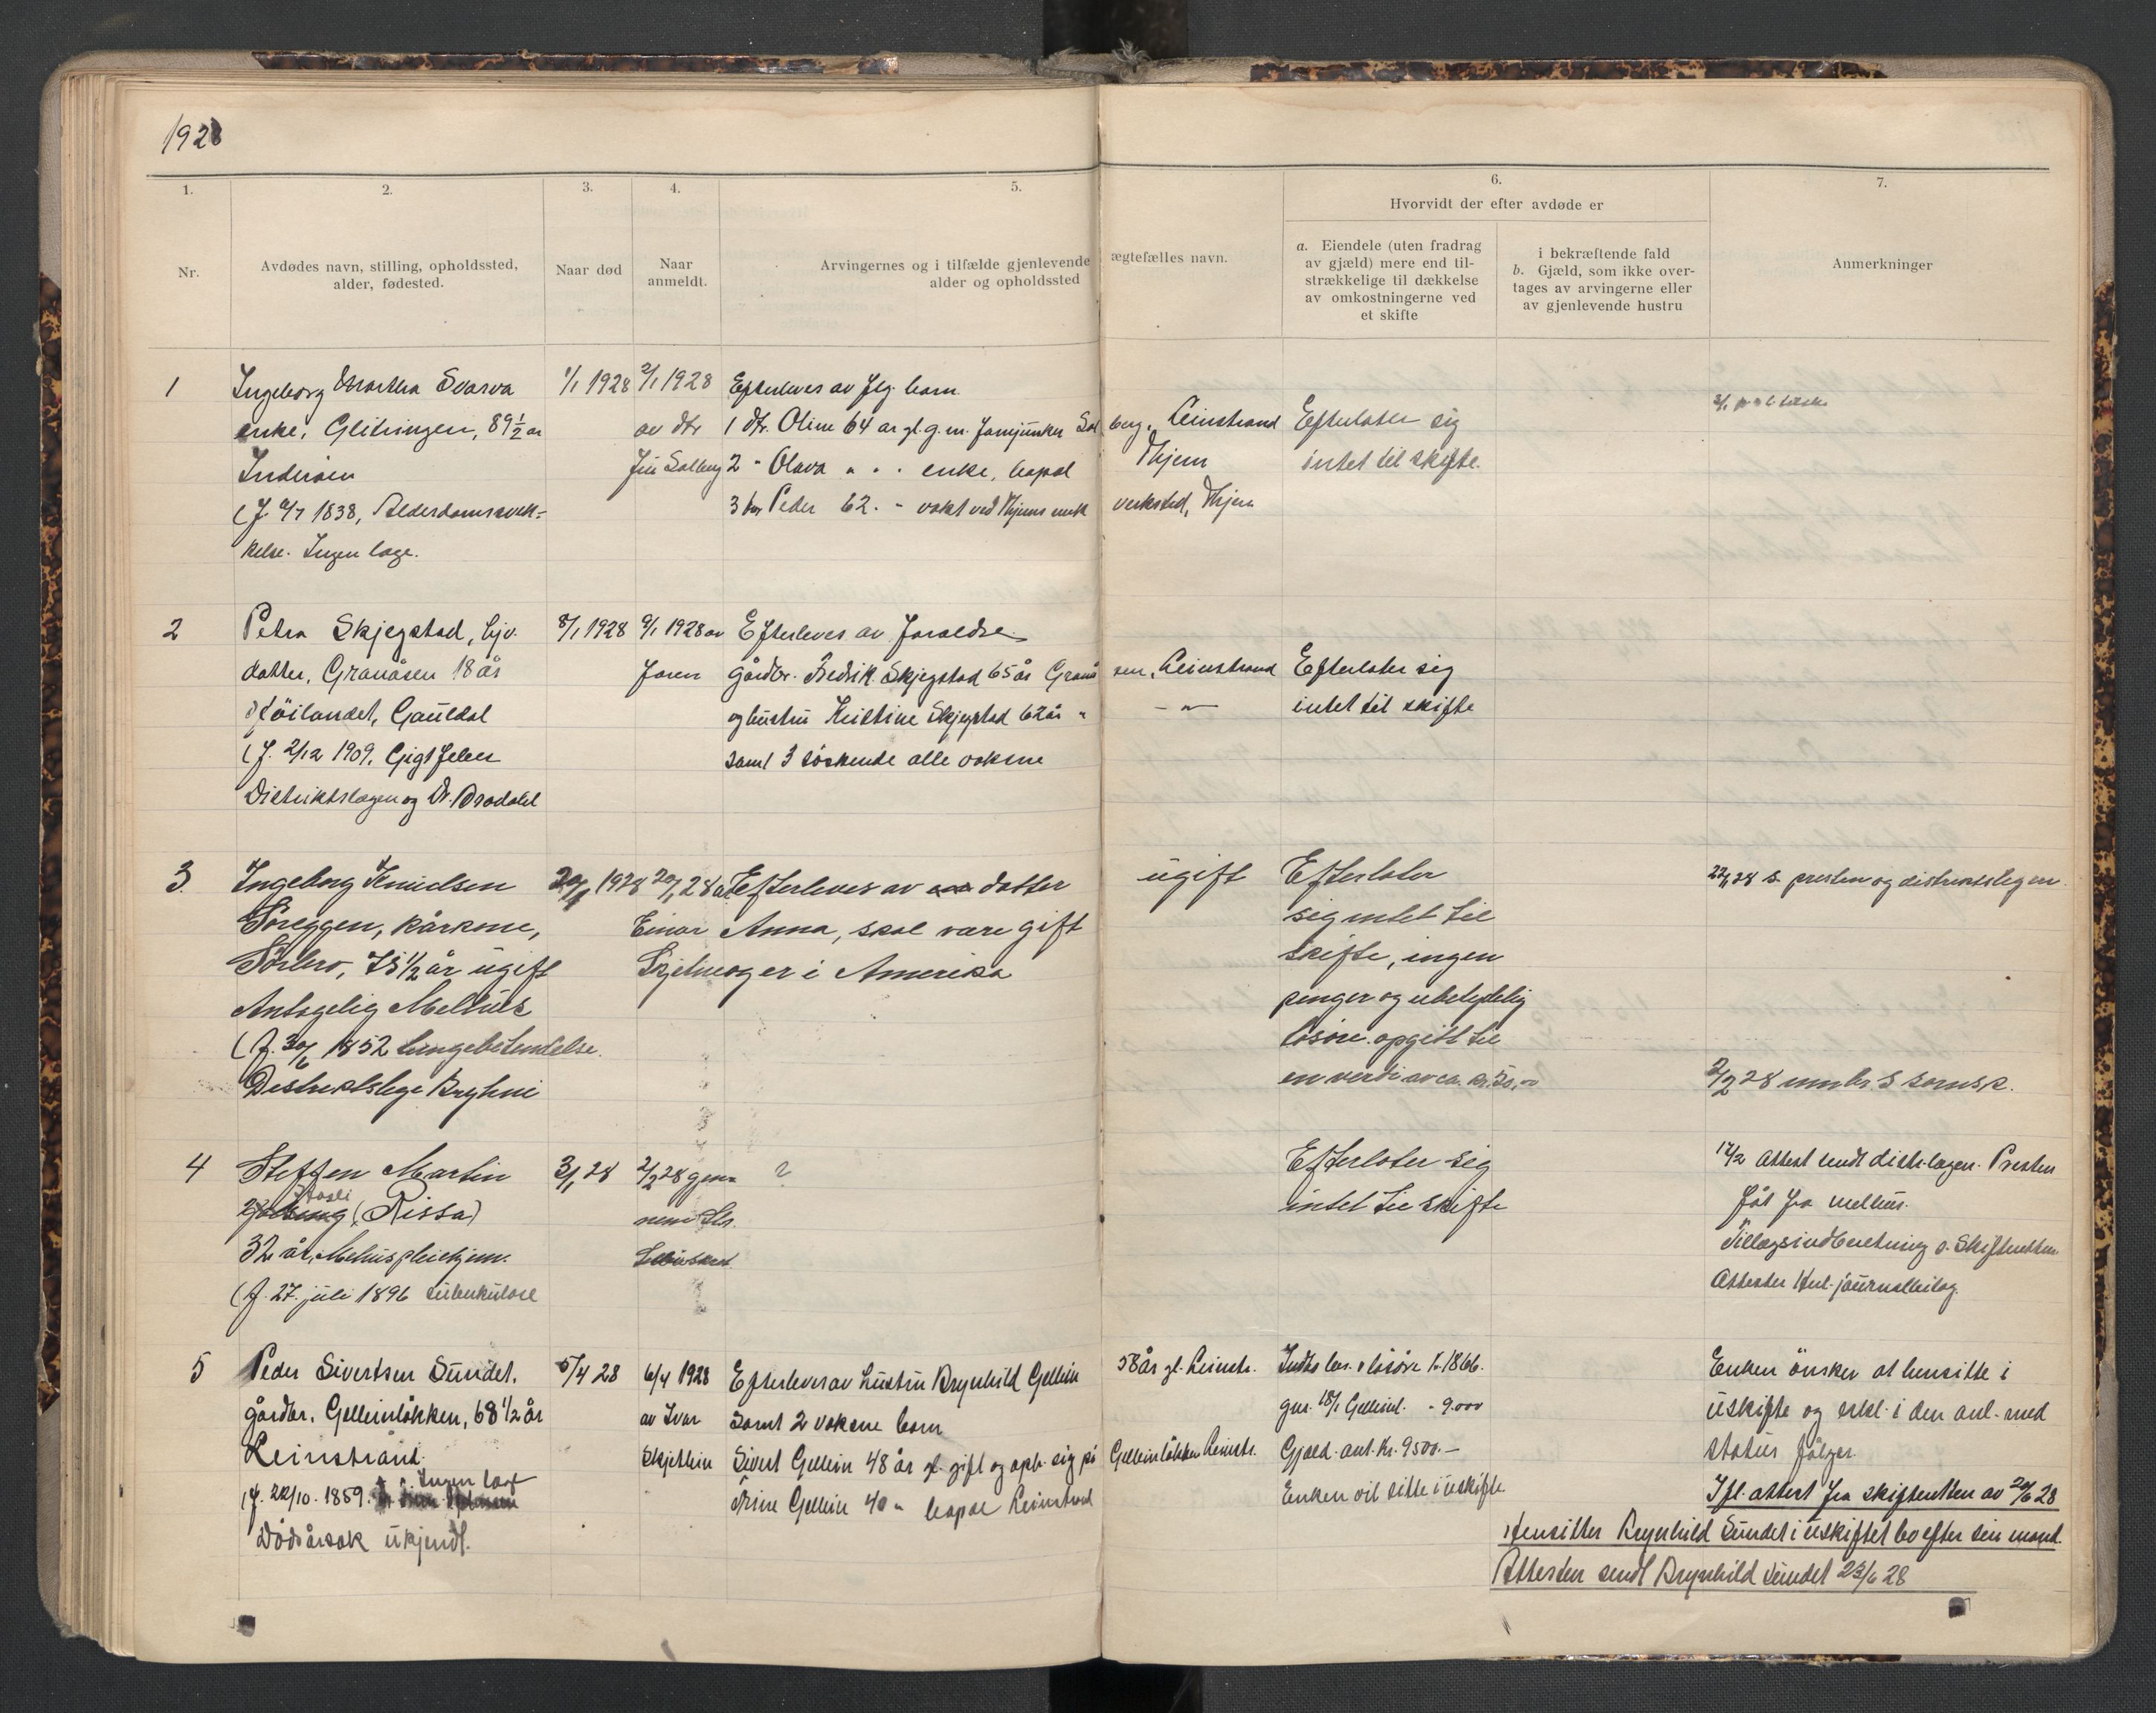 1928
1.
2.
3.
4.
5.
6.
7.
Hvorvidt der efter avdøde er
Nr.
Avdødes navn, stilling, opholdssted,
alder, fødested.
Naar død
Naar
anmeldt.
Arvingernes og i tilfælde gjenlevende ægtefælles navn.
alder og opholdssted
a. Eiendele (uten fradrag
av gjæld) mere end til-
strækkelige til dækkelse
av omkostningerne ved
et skifte
i bekræftende fald
b. Gjæld, som ikke over-
tages av arvingerne eller
av gjenlevende hustru
Anmerkninger
1
Ingeborg Martha Svarva
enke, Glitringen, 89 1/2 år
Inderøen
(f. 1838, Alderdomssvek-
kelse. Ingen læge.
1/1 1928
2/1 1928
av dtr
Solberg
Efterleves av flg. barn
1 dtr. Oline 64 år gl. g. m. Solberg, Leinstrand
2 " Olava " " enke, bopæl Thjem
3 Peder 62 " vakt ved Thjems verksted, Thjem
Efterlater sig
intet til skifte.
2
Petra Skjegstad, hjv.
datter, Granåsen 18 år
Høilandet, Gauldal
(f. 2/12 1909. Gigtfeber
Distriktslægen og Dr. Brodahl
8/1 1928
9/1 1928 av
faren
Efterleves av foreldre
gårdbr. Fredrik Skjegstad 65 år Granåsen, Leinstrand
og hustru Kristine Skjegstad 62 år " -"-
samt 3 søskende alle voksne
Efterlater sig
intet til skifte
3.
Ingeborg Knudsen
Søreggen, kårkone,
Sørbro, 75 1/2 år ugift
Antagelig Melhus
(f. 30/6 1852 lungebetendelse.
Distriktslege Bryhni
20/1 1928
20/1 28 av
Einar
Efterleves av datter
Anna, skal være gift
og er i Amerika
ugift
Efterlater
sig intet til
skifte, ingen
penger og ubetydelig
løsøre opgitt til
en verdi av ca. kr. 50,-
22/1 28 s. presten og distriktslegen
2/2 28 innb. s sorensk.
4
Steffen Martin
(Rissa)
32 år, Melhus pleiehjem.
(f. 27. juli 1896 tuberkulose
3/1 28
2/2 28 gjen-
nem
?
Efterlater sig
intet til skifte
17/2 Attest sendt distr.lægen. Presten
fåt fra Melhus.
Tillægsindberetning s. Skifteretten
Attester journalbilag.
5
Peder Sivertsen Sundet,
gårdbr. Gelleinløkken, 68 1/2 år
Leinstrand.
(f. 22/10. 1859. Ingen læge
Dødsårsak ukjendt.
5/4 28
6/4 1928
av Ivar
Skjetlein
Efterleves av hustru Brynhild Gellein 58 år gl. Leinstr.
samt 2 voksne barn
Sivert Gellein 48 år gl. gift og oph. sig på Gelleinløkken Leinstr.
Trine Gellein 40 " bopæl Leinstrand
løsøre kr. 1866.
gnr. 18/1 Gelleinl. - 9.000
Gjæld ant. kr. 9500.-
Enken vil sitte i uskifte
Enken ønsker at hensitte i
uskifte og erkl. i den anl. med
status følger.
Ifl. attest fra skifteretten av 20/6 28
Hensitter Brynhild Sundet i uskiftet bo efter sin mand.
Attesten sendt Brynhild Sundet 23/6 28